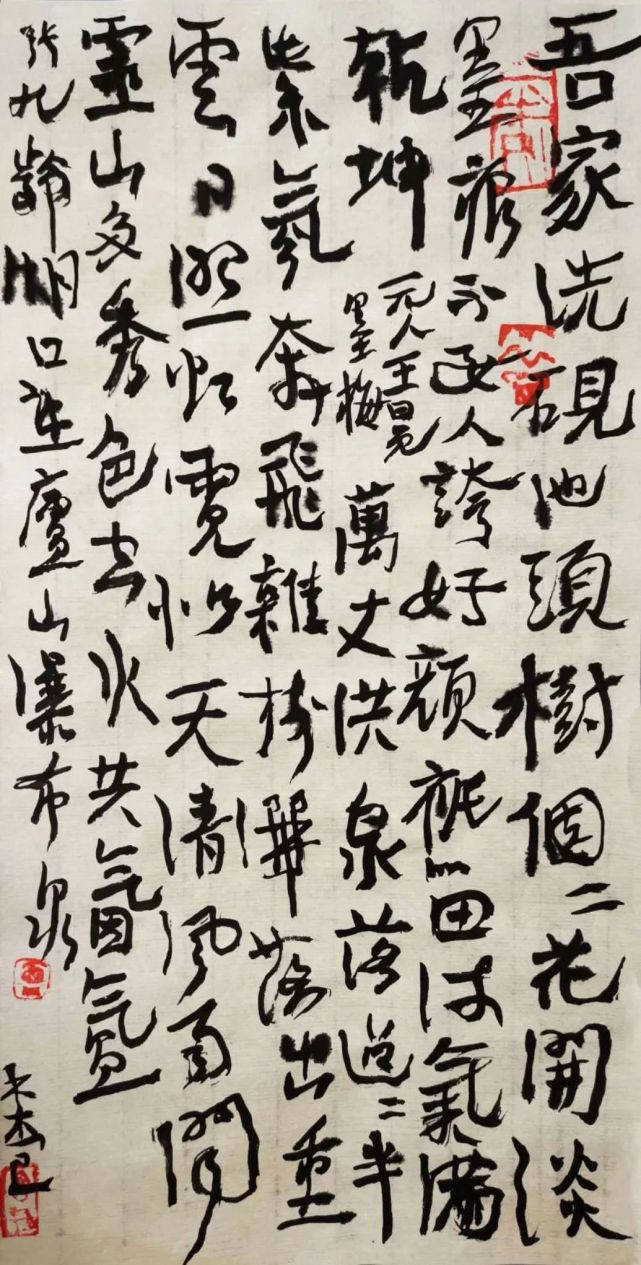 吾家洗硯池頭樹個二花開淡
墨痕不要人誇好顏祇留清氣滿
乾坤
元人王冕
墨梅
萬丈洪泉落迢二半
紫氛奔飛雜樹灑落出重
雲日照虹霓似天清風雨聞
靈山多秀色空水共氤氳
張九齡湖口望廬山瀑布泉